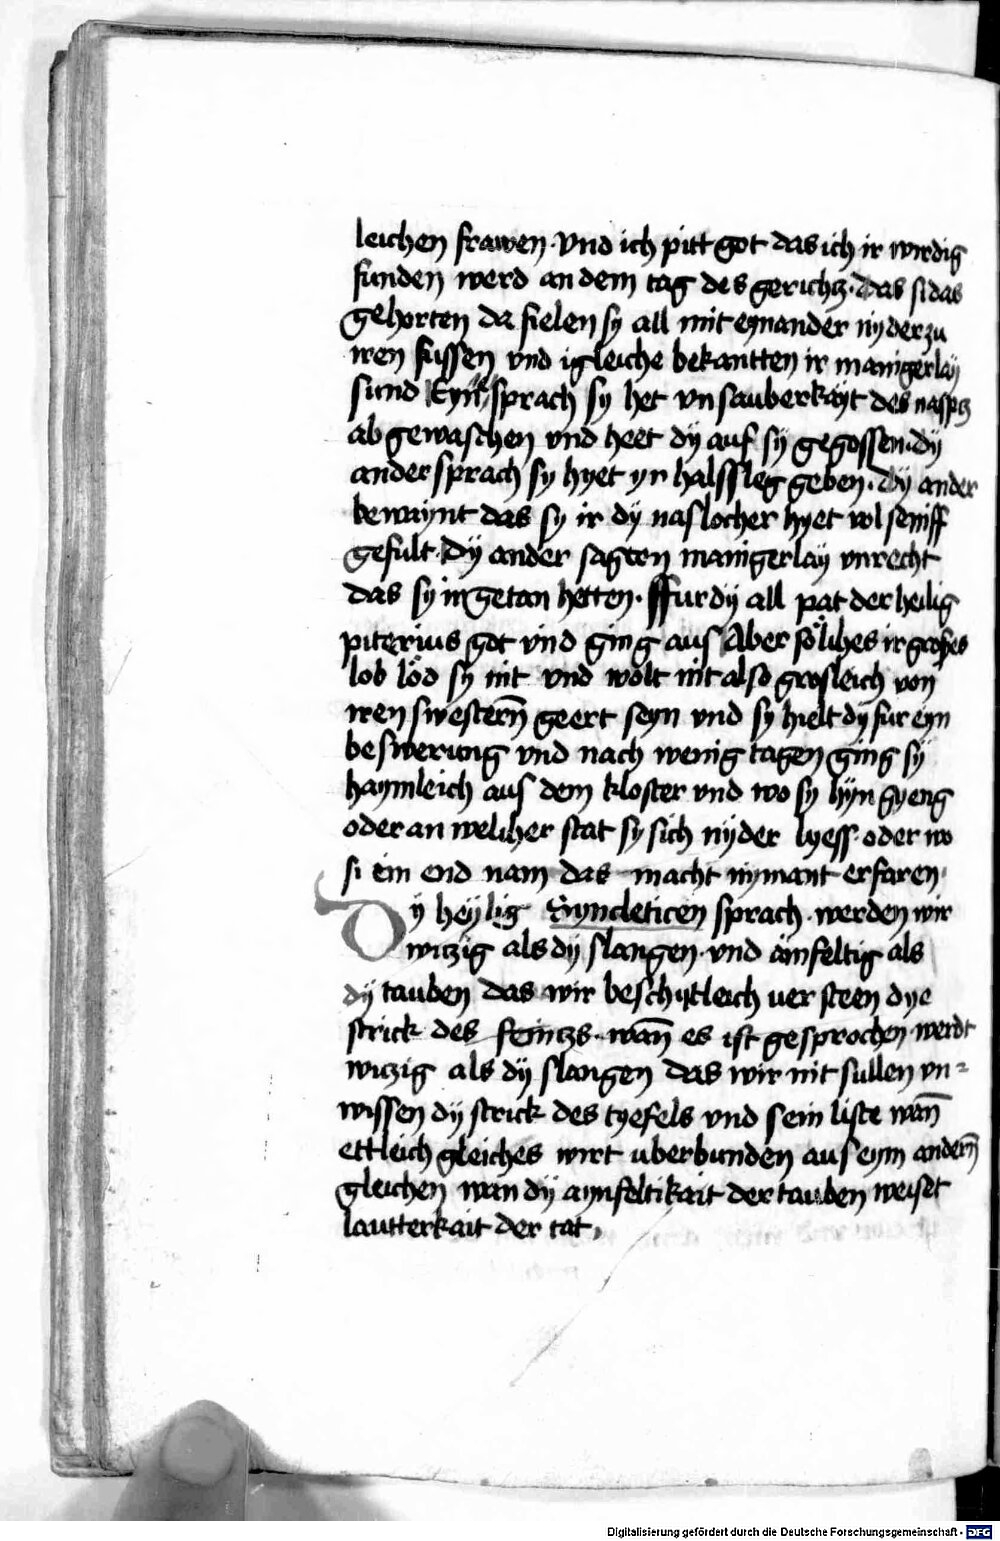 leichen frawen · vnd ich pitt got das ich ir wirdig
funden werd an dem tag des gerichtz · das si das
gehorten da fielen sy all mit eynander nyder zu
iren fussen vnd igleiche bekantten ir manigerlay
sund Eyne sprach sy het vnsauberkäyt des
ab gewaschen vnd heet dÿ auf sÿ gegossen · dÿ
ander sprach sy hyet yr halssleg geben · Dÿ ander
bewaynt das sy ir dÿ naslocher hyet vol seniff
gefult · Dÿ ander sagten manigerlay vnrecht
das sy ir getan hetten · ffur dÿ all pat der heilig
piterius got vnd ging aus Aber sölihes ir groses
lob löd sy nit vnd wolt nit also grosleich von
iren swestern̄ geert seyn vnd sy hielt dÿ fur eyn
beswerung vnd nach wenig tagen ging sÿ
haymleich aus dem kloster vnd wo sy hyn gyeng
oder an weliher stat sy sich nÿder lyess · oder wo
si ein end nam das macht nymant erfaren ·
Dÿ heÿlig Syncleticen sprach · werden wir
witzig als dÿ slangen · vnd ainfeltig als
dÿ tauben das wir beschitleich ver steen dye
strick des feintzs · wan̄ es ist gesprochen · werdt
witzig als dÿ slangen das wir nit sullen vn=
wissen dÿ strick des tyefels vnd sein liste wan̄
ettleich gleiches wirt uberbunden aus eym andern̄
gleichen wan dÿ aynfeltikait der tauben weiset
lautterkait der tat ,
Digitalisierung gefördert durch die Deutsche Forschungsgemeinschaft - DFG